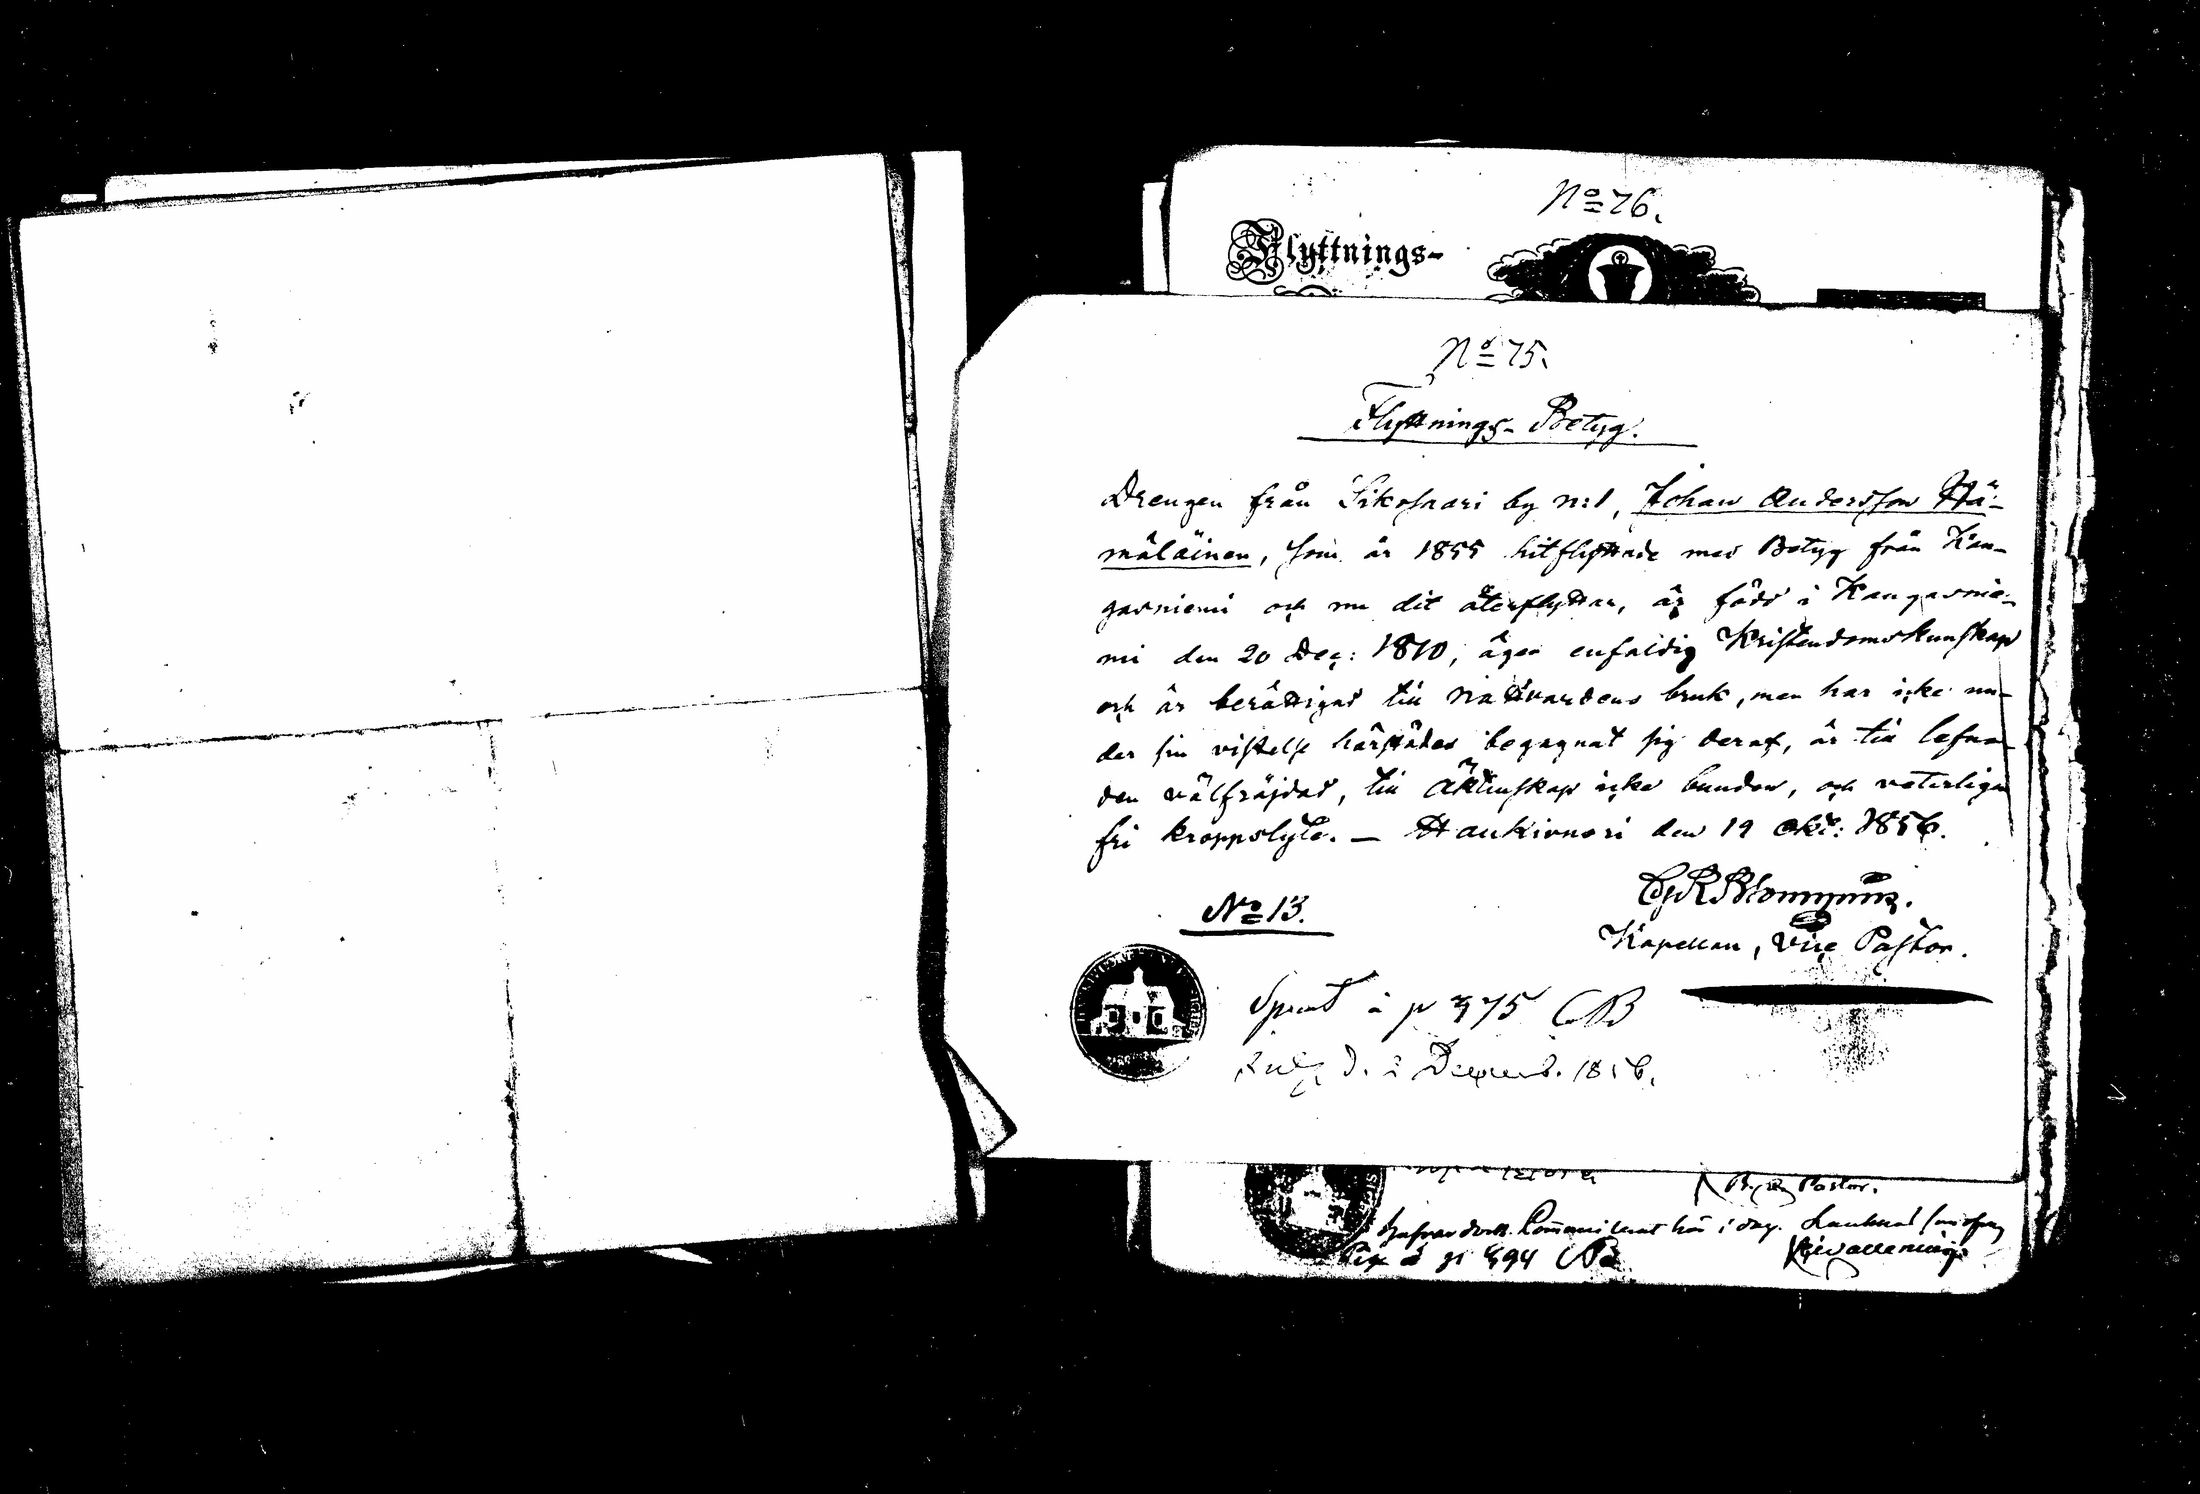 No 76.
Flyttnings-
No 75.
Flyttnings-Betyg.
Drengen från Sikosaari by n:1, Johan Andersson Hä-
mäläinen, som år 1855 hitflyttade med Betyg från Kan-
gasniemi och nu dit återflyttar, är född i Kangasnie-
mi den 20 Dec: 1810, äger enfaldig Kristendomskunskap
och är berättigad till Nattvardens bruk, men har icke un-
der sin vistelse härstädes begagnat sig deraf, är till lefna-
den välfräjdad, till Äktenskap icke bunden, och veterligen
fri kroppslyte. — Haukivuori den 19 Okt: 1856.
No 13.
Kapellan, Vice Pastor.
i p 375 CB
d. 2 Decemb. 1856.
Pastor.
Communicerat här i dag.
p 494 CB